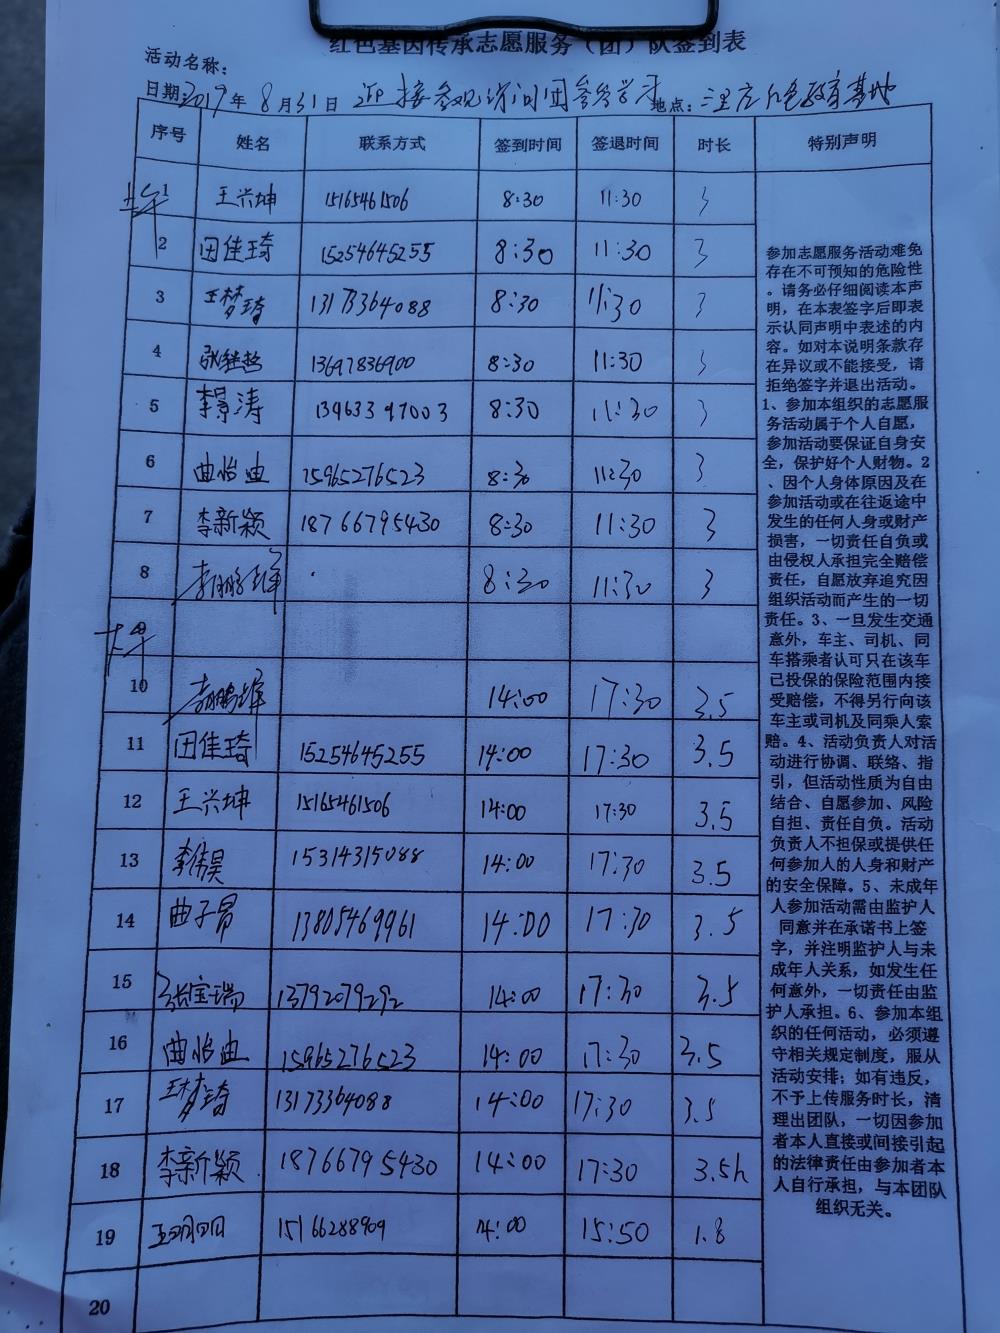 红色基因传承志愿服务（团）队签到表
活动名称：
日期：2019年8月31日 迎接参观访问团参学习 地点：三里庄红色教育基地
序号 姓名 联系方式 签到时间 签退时间 时长 特别声明
上午
1 王兴坤 15165461506 8:30 11:30 3
2 田佳琦 15254645255 8:30 11:30 3
3 王梦琦 13173364088 8:30 11:30 3
4 13697836900 8:30 11:30 3
5 李景涛 13963397003 8:30 11:30 3
6 曲怡迪 15965276523 8:30 11:30 3
7 李新颖 18766795430 8:30 11:30 3
8 8:30 11:30 3
下午
9
10 14:00 17:30 3.5
11 田佳琦 15254645255 14:00 17:30 3.5
12 王兴坤 15165461506 14:00 17:30 3.5
13 李伟昊 15314315088 14:00 17:30 3.5
14 曲子昂 13805469961 14:00 17:30 3.5
15 张宝瑞 13792079292 14:00 17:30 3.5
16 曲怡迪 15965276523 14:00 17:30 3.5
17 王梦琦 13173364088 14:00 17:30 3.5
18 李新颖 18766795430 14:00 17:30 3.5h
19 15166288909 14:00 15:50 1.8
20
参加志愿服务活动难免
存在不可预知的危险性
。请务必仔细阅读本声
明，在本表签字后即表
示认同声明中表述的内
容。如对本说明条款存
在异议或不能接受，请
拒绝签字并退出活动。
1、参加本组织的志愿服
务活动属于个人自愿，
参加活动要保证自身安
全，保护好个人财物。2
、因个人身体原因及在
参加活动或在往返途中
发生的任何人身或财产
损害，一切责任自负或
由侵权人承担完全赔偿
责任，自愿放弃追究因
组织活动而产生的一切
责任。3、一旦发生交通
意外，车主、司机、同
车搭乘者认可只在该车
已投保的保险范围内接
受赔偿，不得另行向该
车主或司机及同乘人索
赔。4、活动负责人对活
动进行协调、联络、指
引，但活动性质为自由
结合、自愿参加、风险
自担、责任自负。活动
负责人不担保或提供任
何参加人的人身和财产
的安全保障。5、未成年
人参加活动需由监护人
同意并在承诺书上签
字，并注明监护人与未
成年人关系，如发生任
何意外，一切责任由监
护人承担。6、参加本组
织的任何活动，必须遵
守相关规定制度，服从
活动安排；如有违反，
不予上传服务时长，清
理出团队，一切因参加
者本人直接或间接引起
的法律责任由参加者本
人自行承担，与本团队
组织无关。